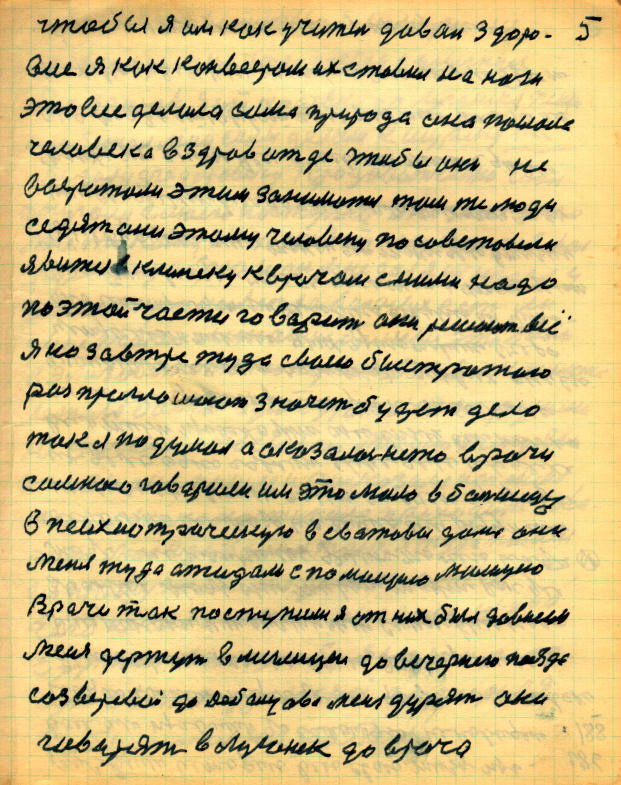 чтобы я им как учитель давал здоро- 5
вие я как конвеером их ставил на ноги
это все делала сама природа она помогла
человека в здравотде чтобы они не
возратили этим заниматся там те люди
седят они этому человеку посоветовали
явится в клинеку к врачам с ними надо
по этой части говарить они решают всё
я на завтре туда своею быстратою
раз приглошают значет будет дело
так я подумал а оказалось не то врачи
самною говарили им это мало в больницу
в психиотрическую в сватовы доме они
меня туда ожидали с помищию милицию
врачи так поступили я от них был довнели
меня держут в милицеи до вечернего поезда
со зверевой до Дебальцово меня дурят они
говарят в Луганск до врача